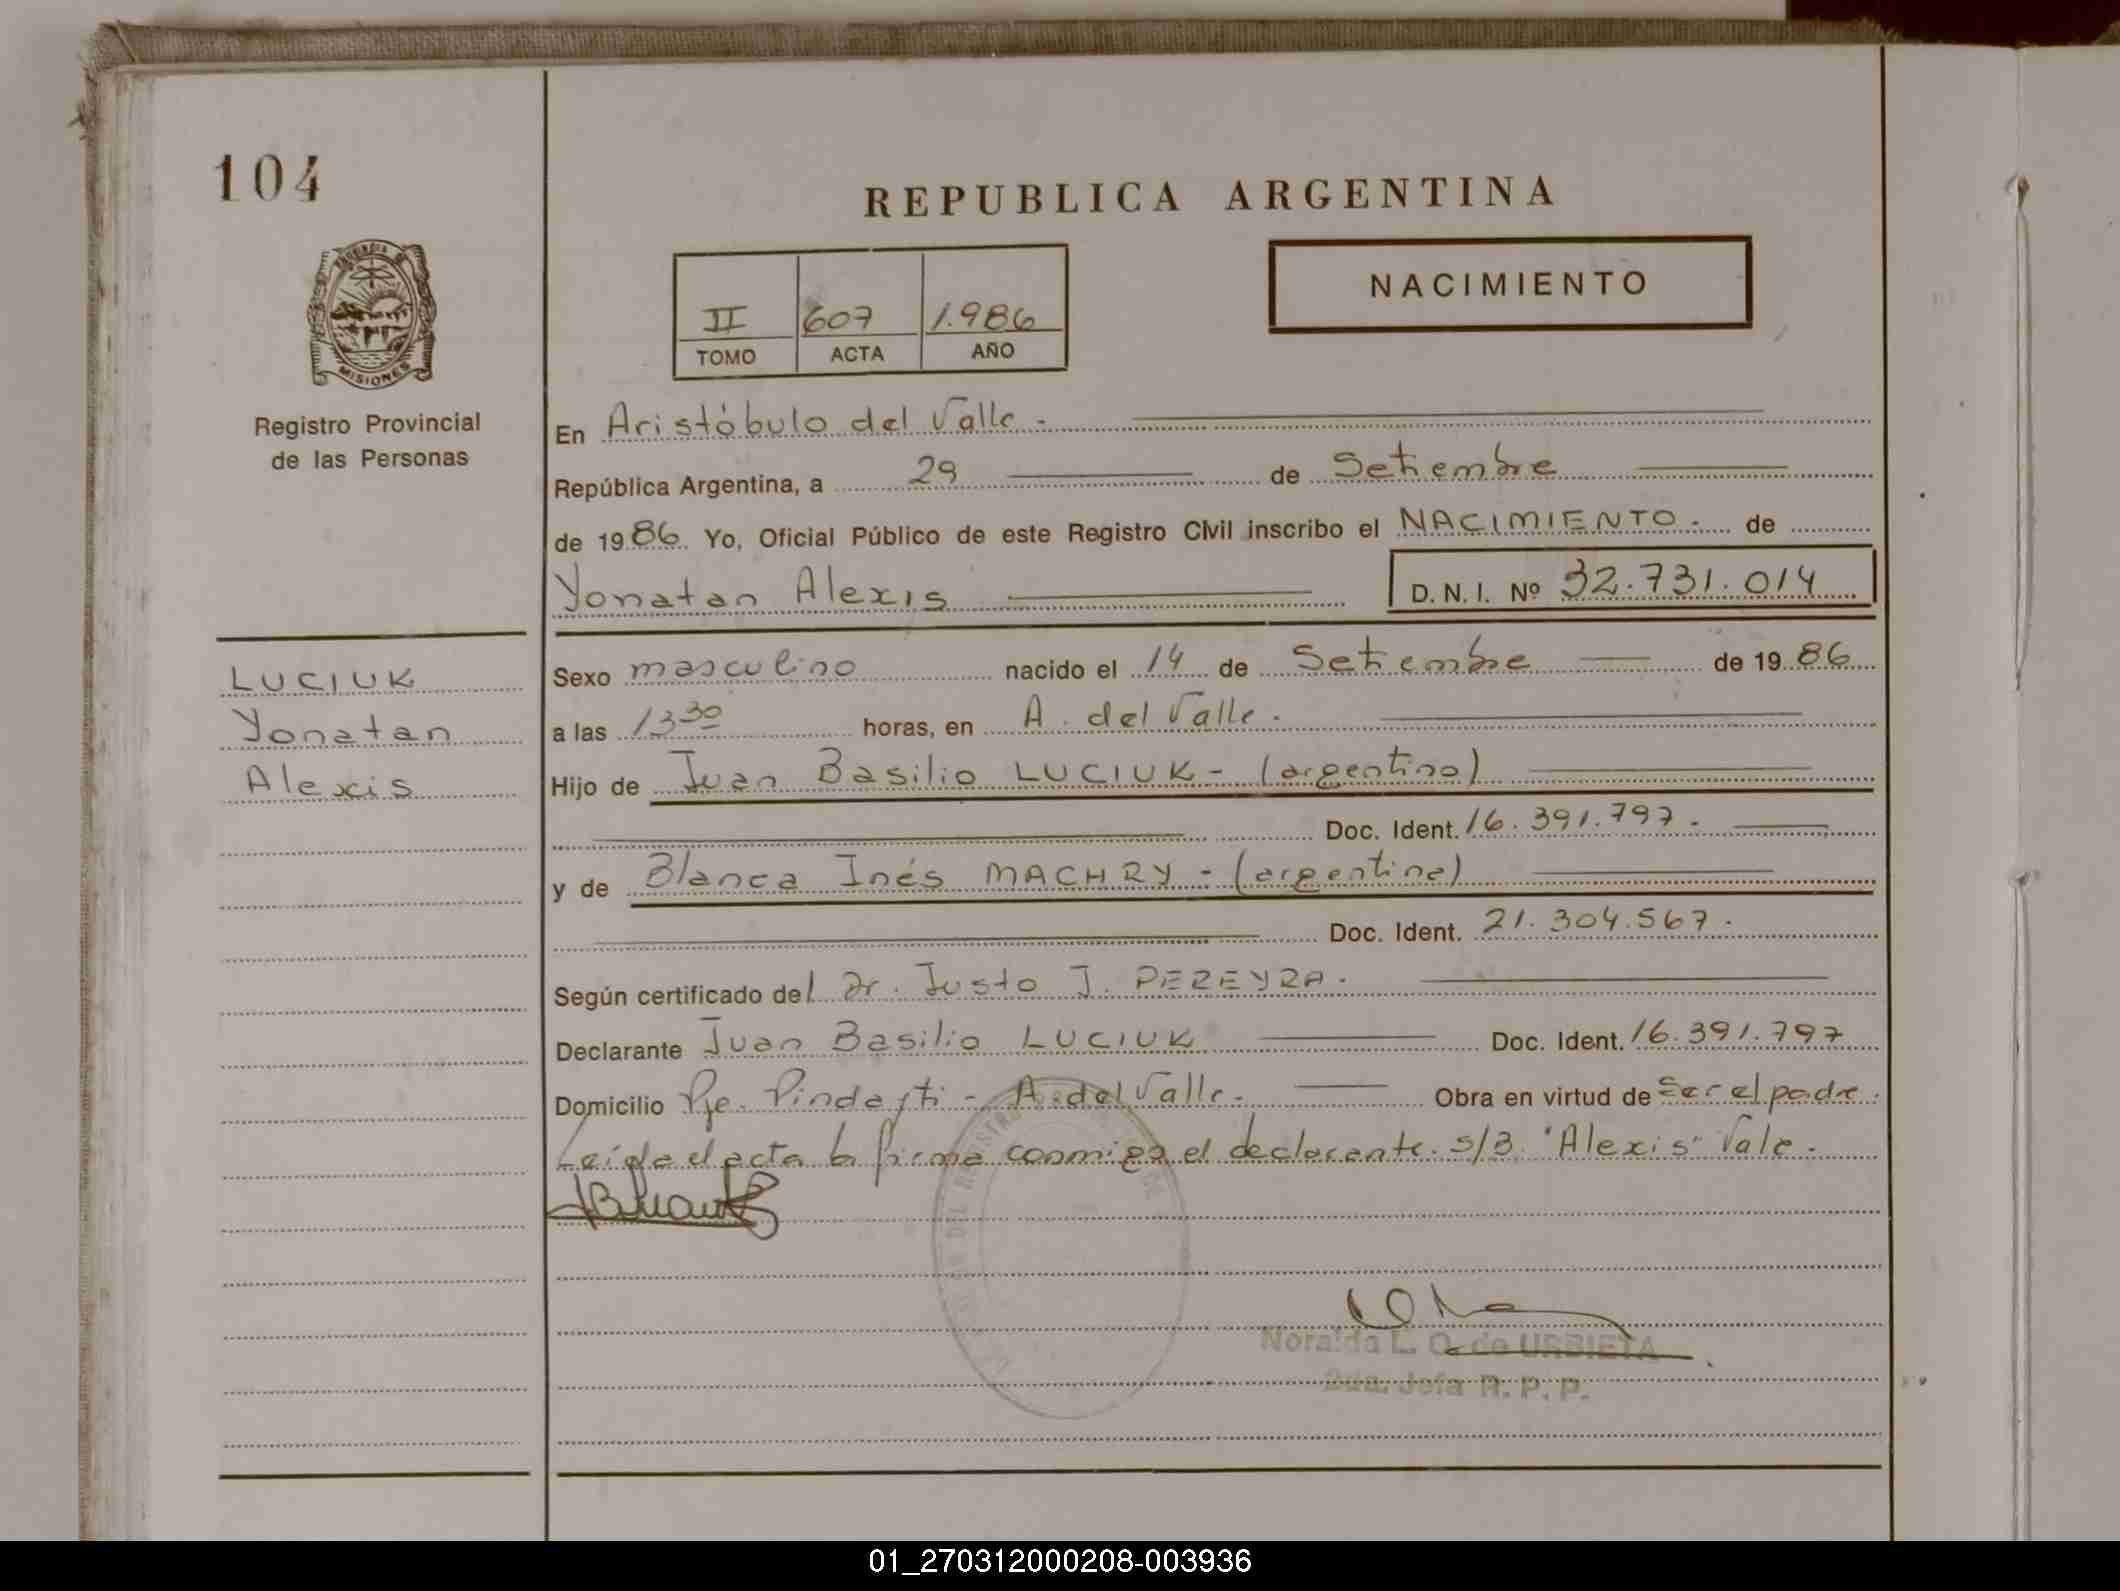 104
REPUBLICA ARGENTINA
PROVINCIA DE
MISIONES
Registro Provincial
de las Personas
II 607 1.986
TOMO ACTA AÑO
NACIMIENTO
En Aristóbulo del Valle.-
República Argentina, a 29 de Setiembre
de 1986 Yo, Oficial Público de este Registro Civil inscribo el NACIMIENTO.- de
Yonatan Alexis D. N. I. Nº 32.731.014
LUCIUK
Yonatan
Alexis
Sexo masculino nacido el 14 de Setiembre de 1986
a las 13 30 horas, en A. del Valle.
Hijo de Juan Basilio LUCIUK - (argentino)
Doc. Ident. 16.391.797.-
y de Blanca Inés MACHRY - (argentina)
Doc. Ident. 21.304.567.
Según certificado del Dr. Justo J. PEREYRA.
Declarante Juan Basilio LUCIUK Doc. Ident. 16.391.797
Domicilio Pje. Pindayti - A. del Valle.- Obra en virtud de ser el padre.
Leída el acta la firma conmigo el declarante. s/B. "Alexis" Vale.
Noralda L. O. de URBIETA
2da. Jefa R. P. P.
01_270312000208-003936